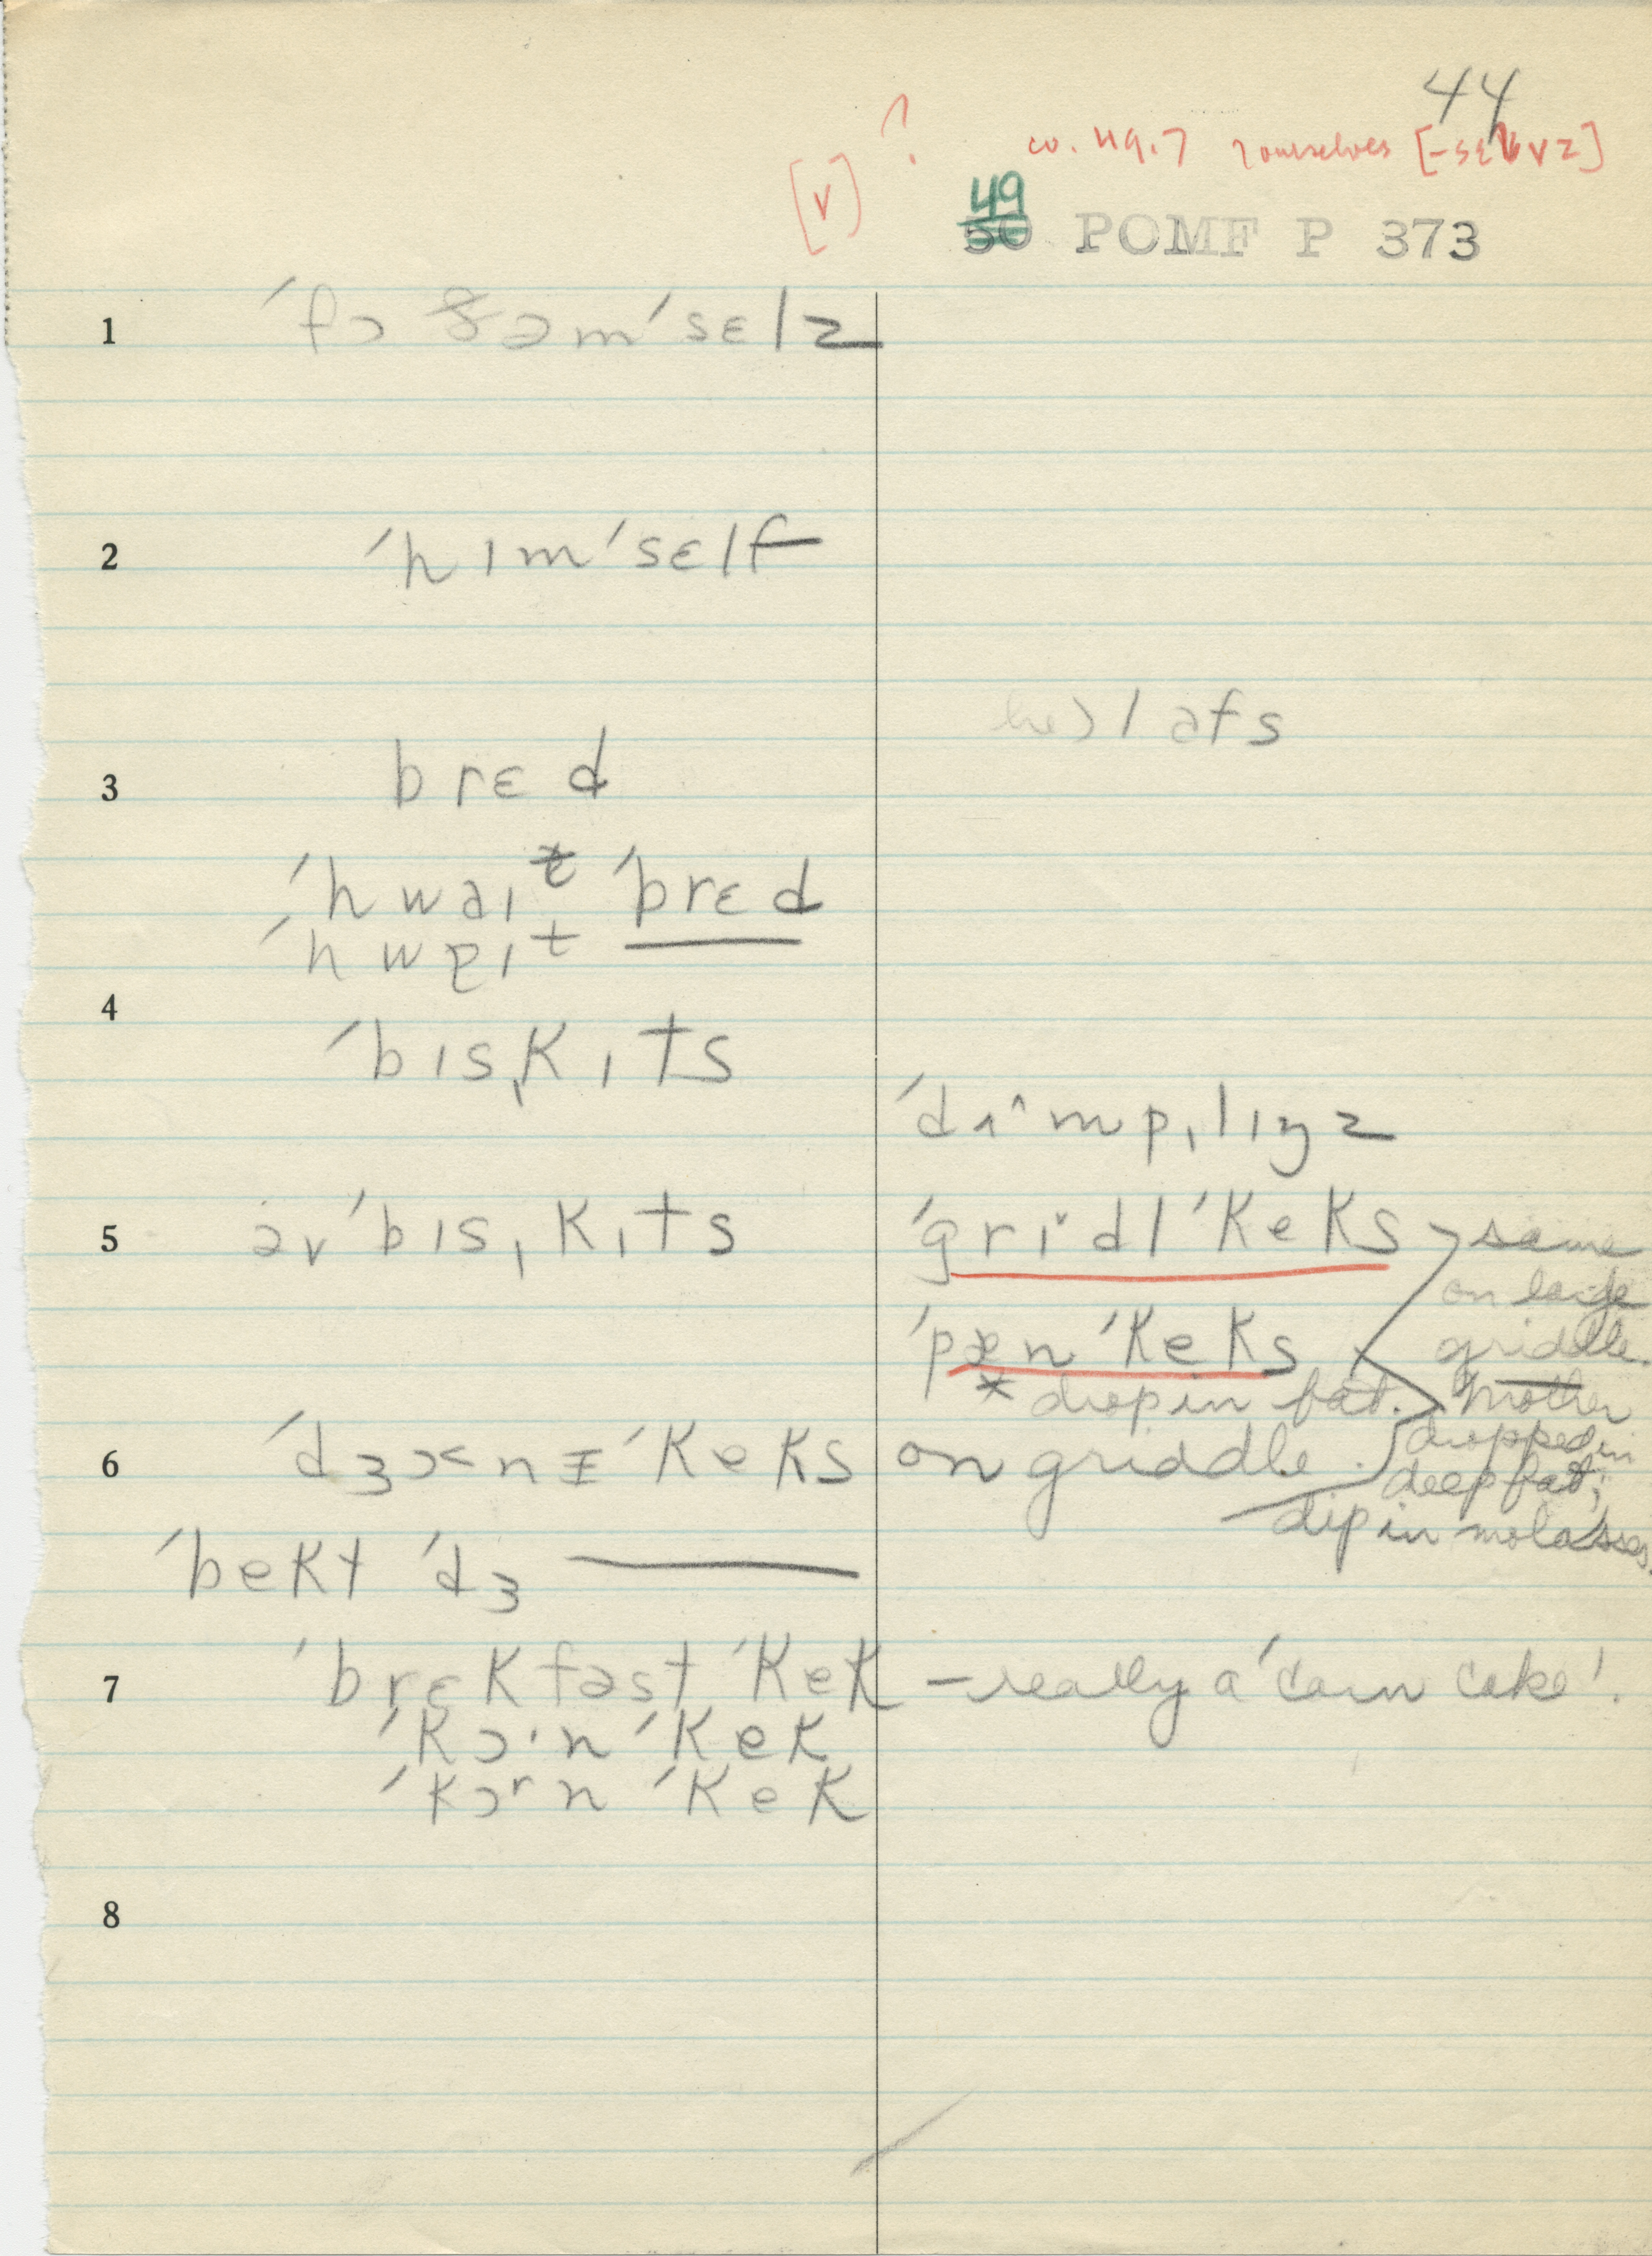 44
[v] ?
49
50 POMF P 373
1 ˈfɔ ðəmˈsɛlz
2 ˈhɪmˈsɛlf
lɔfs
3 brɛd
ˈhwaɪt ˈbrɛd
ˈhwɐɪt ———
4
ˈbɪsˌkɪts
ˈdʌ^mpˌlɪŋz
5 əv ˈbɪsˌkɪts ˈgrɪ˅dl ˈkeks same
on large
griddle.
ˈpæn ˈkeks
* drop in fat. Mother
dropped in
deep fat;
dip in molasses.
6 ˈdʒɔnɪ ˈkeks on griddle.
ˈbekt ˈdʒ ———
7 ˈbrɛkfəst ˈkek – really a 'corn cake'.
ˈkɔ·n ˈkek
ˈkɔʳn ˈkek
8